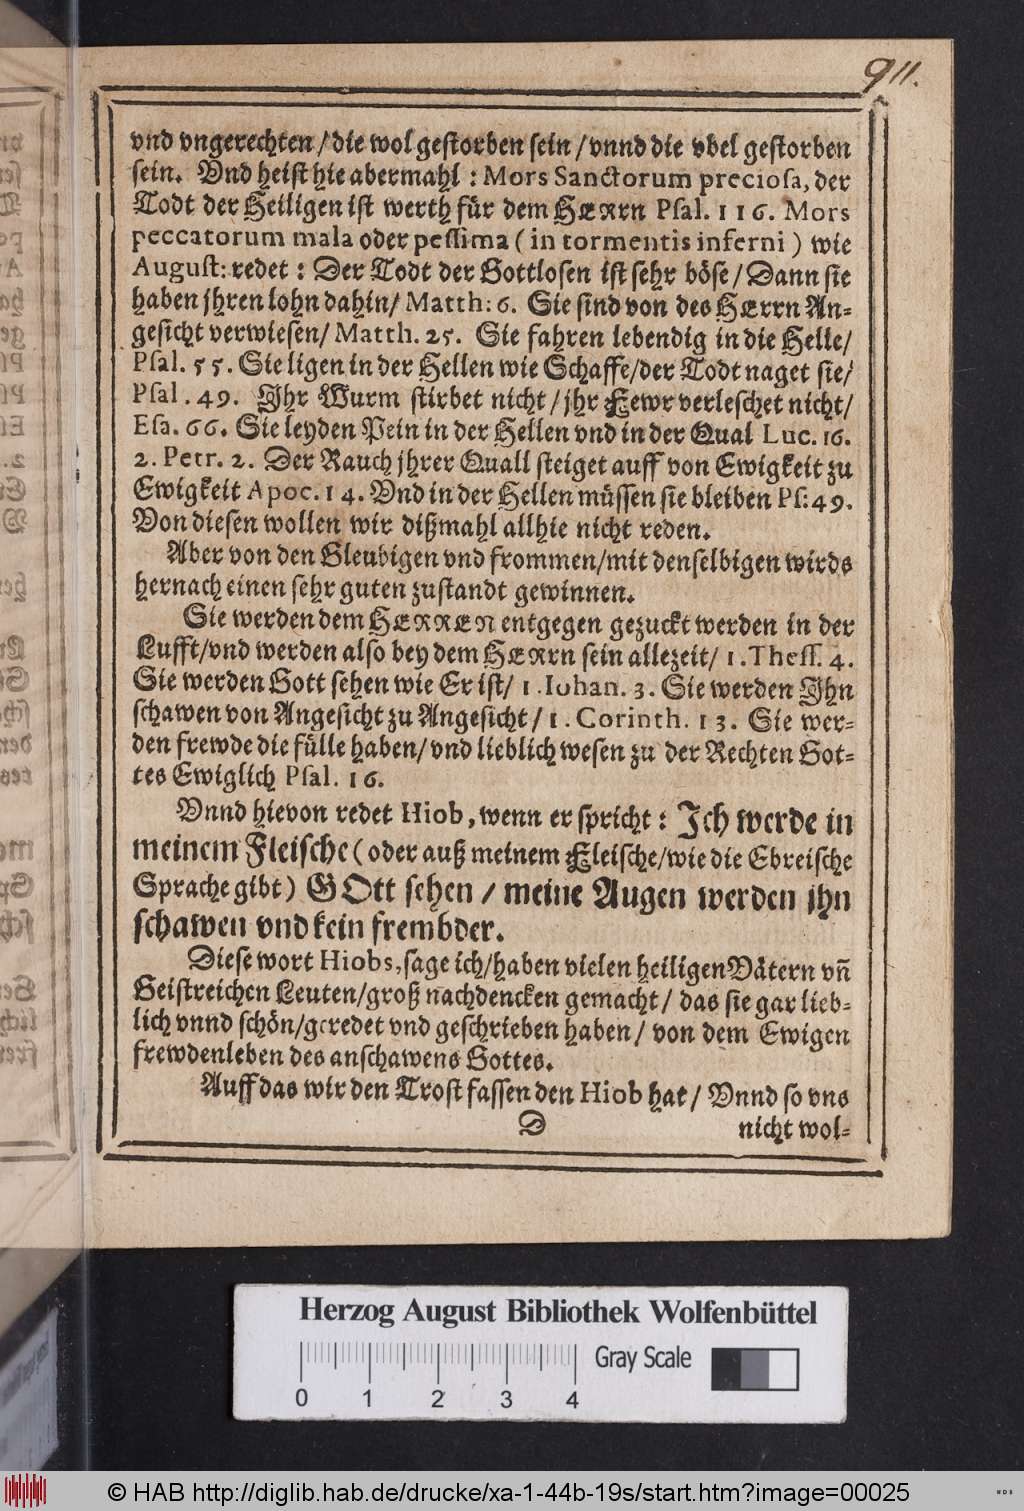 911.
vnd vngerechten / die wol gestorben sein / vnnd die vbel gestorben
sein. Vnd heist hie abermahl : Mors Sanctorum preciosa, der
Todt der Heiligen ist werth für dem HErrn Psal. 116. Mors
peccatorum mala oder pessima ( in tormentis inferni ) wie
August: redet : Der Todt der Gottlosen ist sehr böse / Dann sie
haben jhren lohn dahin/ Matth: 6. Sie sind von des HErrn An-
gesicht verwiesen/ Matth. 25. Sie fahren lebendig in die Helle/
Psal. 55. Sie ligen in der Hellen wie Schaffe/der Todt naget sie/
Psal. 49. Ihr Wurm stirbet nicht / jhr Fewr verleschet nicht/
Esa. 66. Sie leyden Pein in der Hellen vnd in der Qual Luc. 16.
2. Petr. 2. Der Rauch jhrer Quall steiget auff von Ewigkeit zu
Ewigkeit Apoc. 14. Vnd in der Hellen müssen sie bleiben Ps: 49.
Von diesen wollen wir dißmahl allhie nicht reden.
Aber von den Gleubigen vnd frommen/mit denselbigen wirds
hernach einen sehr guten zustandt gewinnen.
Sie werden dem HERREN entgegen gezuckt werden in der
Lufft/vnd werden also bey dem HERrn sein allezeit/ 1. Thess. 4.
Sie werden Gott sehen wie Er ist/ 1. Iohan. 3. Sie werden Ihn
schawen von Angesicht zu Angesicht / 1. Corinth. 13. Sie wer-
den frewde die fülle haben/ vnd lieblich wesen zu der Rechten Got-
tes Ewiglich Psal. 16.
Vnnd hievon redet Hiob, wenn er spricht : Ich werde in
meinem Fleische ( oder auß meinem Fleische/wie die Ebreische
Sprache gibt ) GOtt sehen / meine Augen werden jhn
schawen vnd kein frembder.
Diese wort Hiobs, sage ich/haben vielen heiligen Vätern vñ
Geistreichen Leuten/groß nachdencken gemacht / das sie gar lieb-
lich vnnd schön/geredet vnd geschrieben haben / von dem Ewigen
frewdenleben des anschawens Gottes.
Auff das wir den Trost fassen den Hiob hat / Vnnd so vns
D nicht wol-
Herzog August Bibliothek Wolfenbüttel
Gray Scale
0 1 2 3 4
© HAB http://diglib.hab.de/drucke/xa-1-44b-19s/start.htm?image=00025